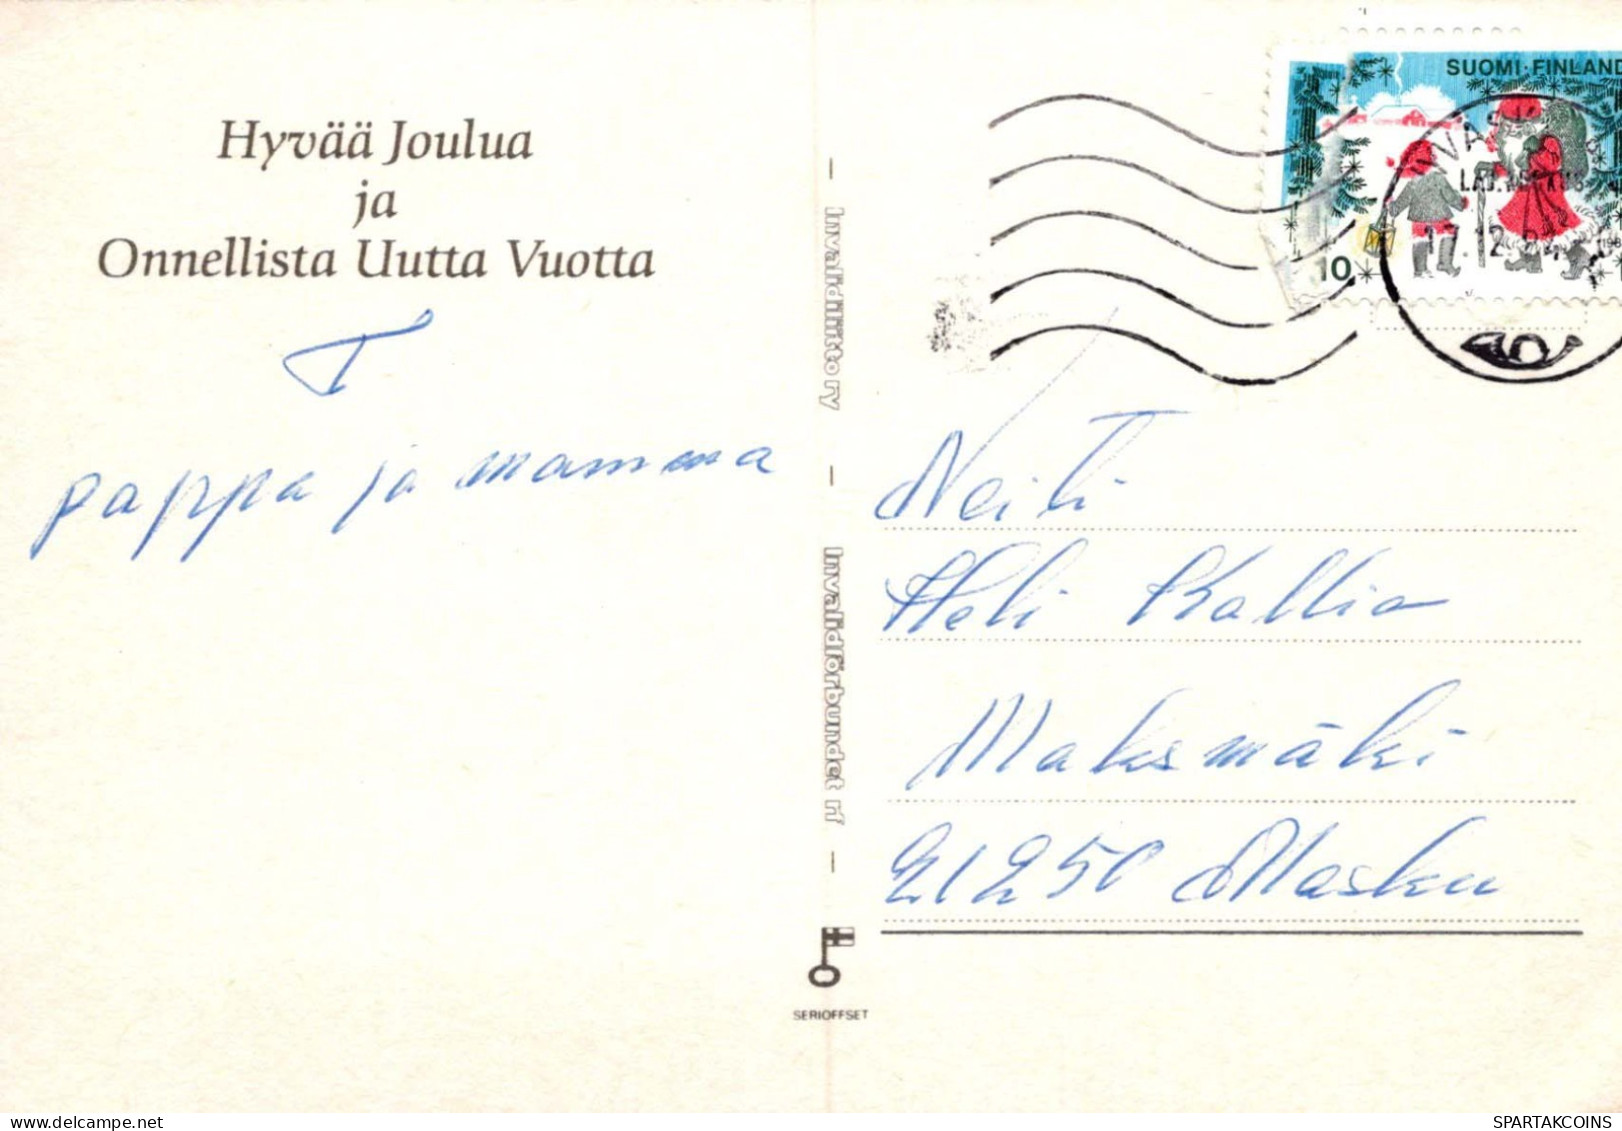 Hyvää Joulua
ja
Onnellista Uutta Vuotta
T
pappa ja mamma
Invalidiliitto ry
Invalidförbundet rf
SERIOFFSET
SUOMI·FINLAND
10
17.12
Neiti
Heli Kallio
Maksmäki
21250 Masku
SPARTAKCOINS